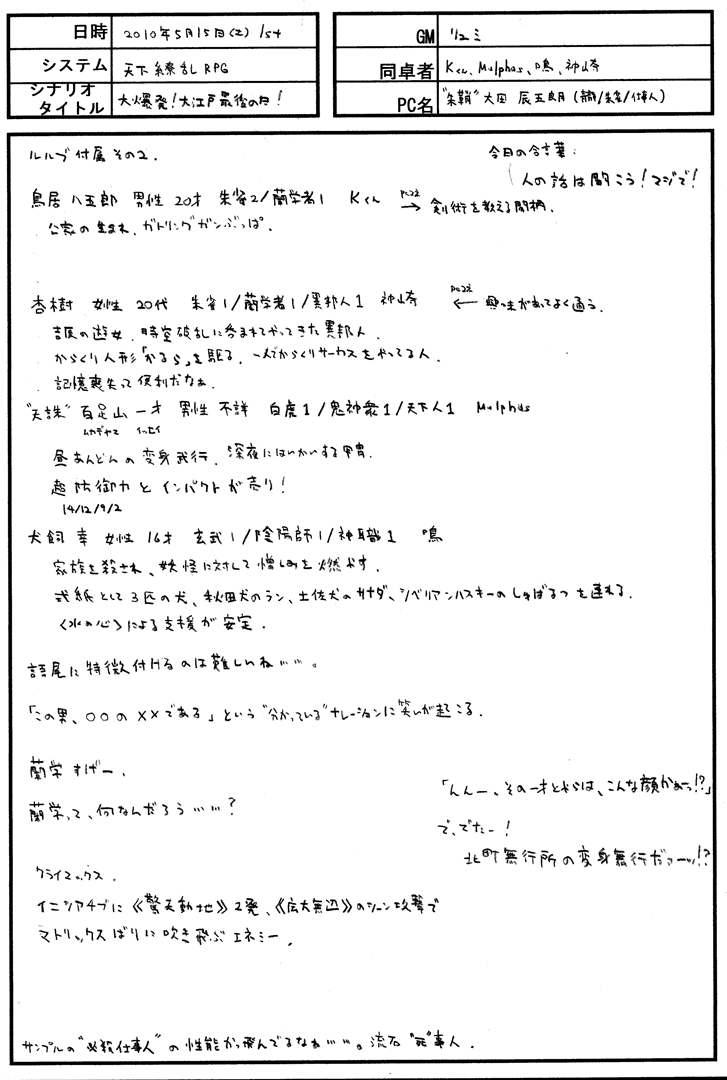 日時 2010年5月15日(土) 1st
システム 天下繚乱RPG
シナリオタイトル 大爆発!大江戸最後の日!
GM リュミ
同卓者 Kくん、Mulphus、鳴、神崎
PC名 "朱鞘" 大田 辰五郎 (蘭/朱雀/仕事人)
ルルブ付属 その2.
今日の合言葉:
人の話は聞こう!マジで!
鳥居 八五郎 男性 20才 朱雀2/蘭学者1 Kくん PC22 → 剣術を教える間柄.
公家の生まれ、ガトリングガンぶっぱ.
杏樹 女性 20代 朱雀1/蘭学者1/異邦人1 神崎 PC22 ← 興味があってよく通う.
吉原の遊女. 時空破乱に呑まれてやってきた異邦人.
からくり人形「かるら」を駆る. 一人でからくりサーカスをやってる人.
記憶喪失って便利だなぁ.
"天誅" 百足山 一才 男性 不詳 白虎1/鬼神衆1/天下人1 Mulphus
ムカデヤマ イッセイ
昼あんどんの変身武行. 深夜にはいかいする甲冑.
超防御力とインパクトが売り!
14/12/9/2
犬飼 幸 女性 16才 玄武1/陰陽師1/神職1 鳴
家族を殺され、妖怪に対して憎しみを燃やす.
式紙として3匹の犬、秋田犬のラン、土佐犬のサナダ、シベリアンハスキーのしゅばるつを連れる.
〈水の心〉による支援が安定.
語尾に特徴付けるのは難しいね……。
「この男、○○の××である」という"分かっている"ナレーションに笑いが起こる.
蘭学すげー.
蘭学って、何なんだろう……?
「んんー、その一才とやらは、こんな顔かぁーっ!?」
で、でたー!
北町無行所の変身無行だァーッ!?
クライマックス.
イニシアチブに《驚天動地》2発、《広大無辺》のシーン攻撃で
マトリックスばりに吹き飛ぶエネミー.
サンプルの"必殺仕事人"の性能かっ飛んでるなぁ……。流石"死"事人.